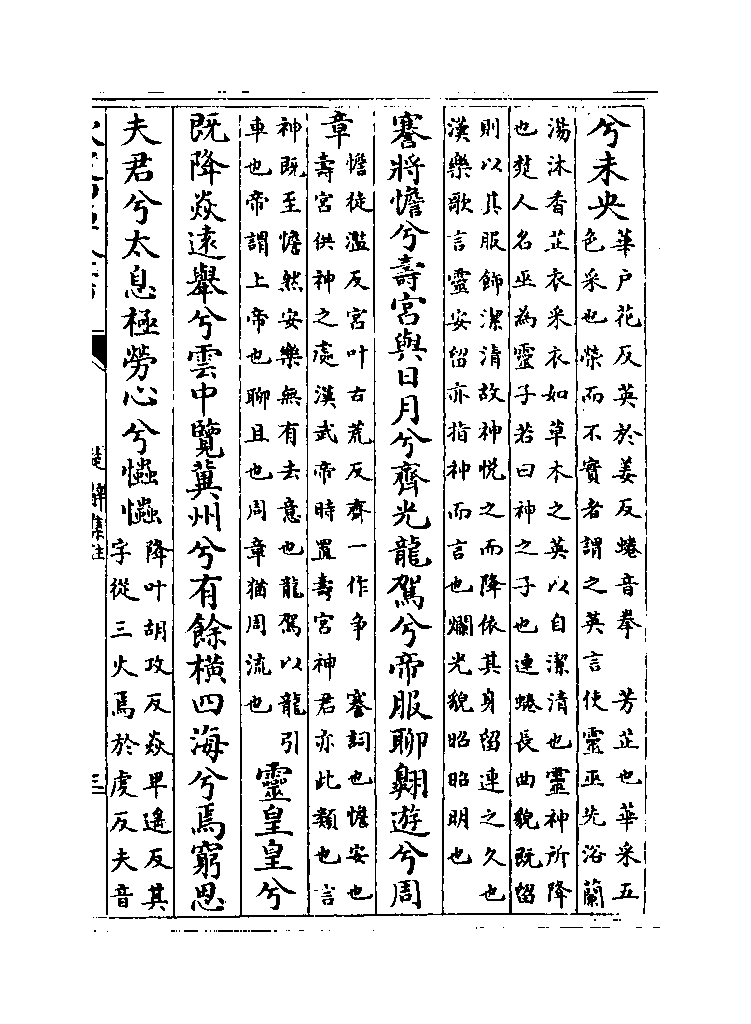 兮未央
華戶花反英於姜反蜷音拳　芳芷也華采五
色采也榮而不實者謂之英言使靈巫先浴蘭
湯沐香芷衣采衣如草木之英以自潔清也靈神所降
也楚人名巫為靈子若曰神之子也連蜷長曲貌既留
則以其服飾潔清故神悅之而降依其身留連之久也
漢樂歌言靈安留亦指神而言也爛光貌昭昭明也
謇將憺兮壽宮與日月兮齊光龍駕兮帝服聊翺遊兮周
章
憺徒濫反宮叶古荒反齊一作争　謇詞也憺安也
壽宮供神之處漢武帝時置壽宮神君亦此類也言
神既至憺然安樂無有去意也龍駕以龍引
車也帝謂上帝也聊且也周章猶周流也
靈皇皇兮
既降焱遠舉兮雲中覽冀州兮有餘橫四海兮焉窮思
夫君兮太息極勞心兮𢥞𢥞
降叶胡攻反焱卑遙反其
字從三火焉於虔反夫音
楚辭集註
三